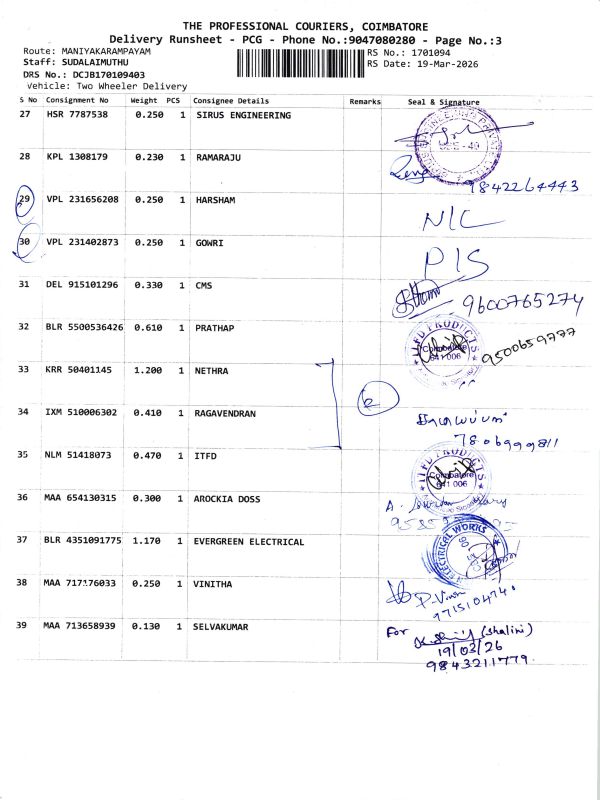 THE PROFESSIONAL COURIERS, COIMBATORE
Delivery Runsheet - PCG - Phone No.:9047080280 - Page No.:3
Route: MANIYAKARAMPAYAM
RS No.: 1701094
Staff: SUDALAIMUTHU
RS Date: 19-Mar-2026
DRS No.: DCJB170109403
Vehicle: Two Wheeler Delivery
S No Consignment No Weight PCS Consignee Details Remarks Seal & Signature
27 HSR 7787538 0.250 1 SIRUS ENGINEERING
28 KPL 1308179 0.230 1 RAMARAJU
9842264443
29 VPL 231656208 0.250 1 HARSHAM N/C
30 VPL 231402873 0.250 1 GOWRI P/S
31 DEL 915101296 0.330 1 CMS 9600765274
32 BLR 5500536426 0.610 1 PRATHAP 9500659777
ITFD PRODUCTS
Coimbatore
641 006
33 KRR 50401145 1.200 1 NETHRA
34 IXM 510006302 0.410 1 RAGAVENDRAN
7806999811
35 NLM 51418073 0.470 1 ITFD
ITFD PRODUCTS
Coimbatore
641 006
36 MAA 654130315 0.300 1 AROCKIA DOSS
37 BLR 4351091775 1.170 1 EVERGREEN ELECTRICAL
ELECTRICAL WORKS
38 MAA 717176033 0.250 1 VINITHA
39 MAA 713658939 0.130 1 SELVAKUMAR For
(Shalini)
19/03/26
9843211779